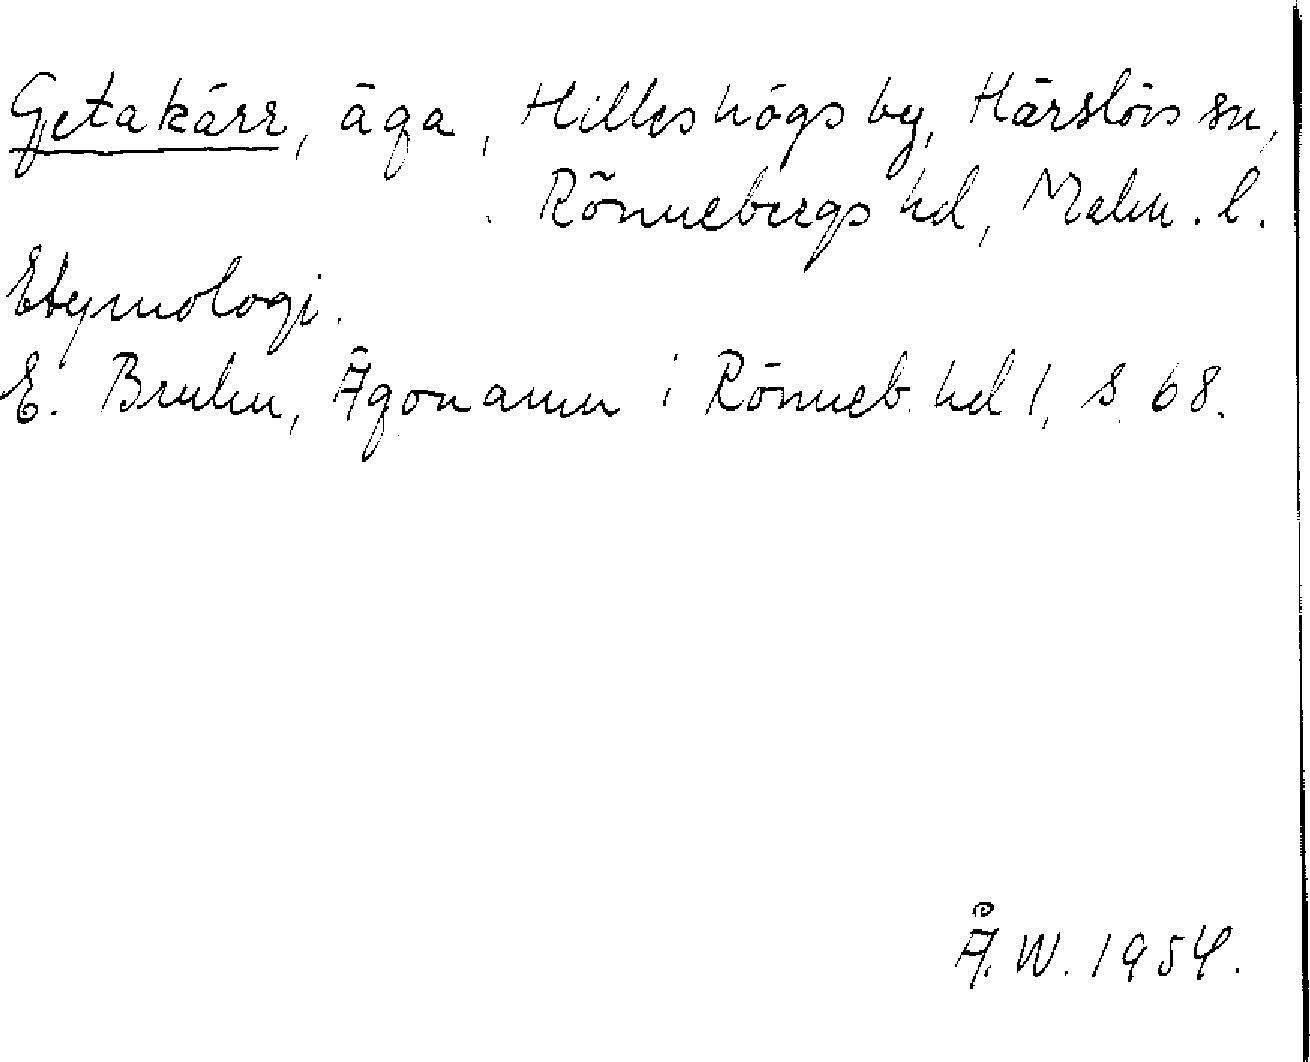 Getakärr, äga, Hilleshögs by, Härslövs sn,
Rönnebergs hd, Malm. l.
Etymologi.
E. Bruhn, Ägonamn i Rönneb. hd 1, s. 68.
Å. W. 1954.